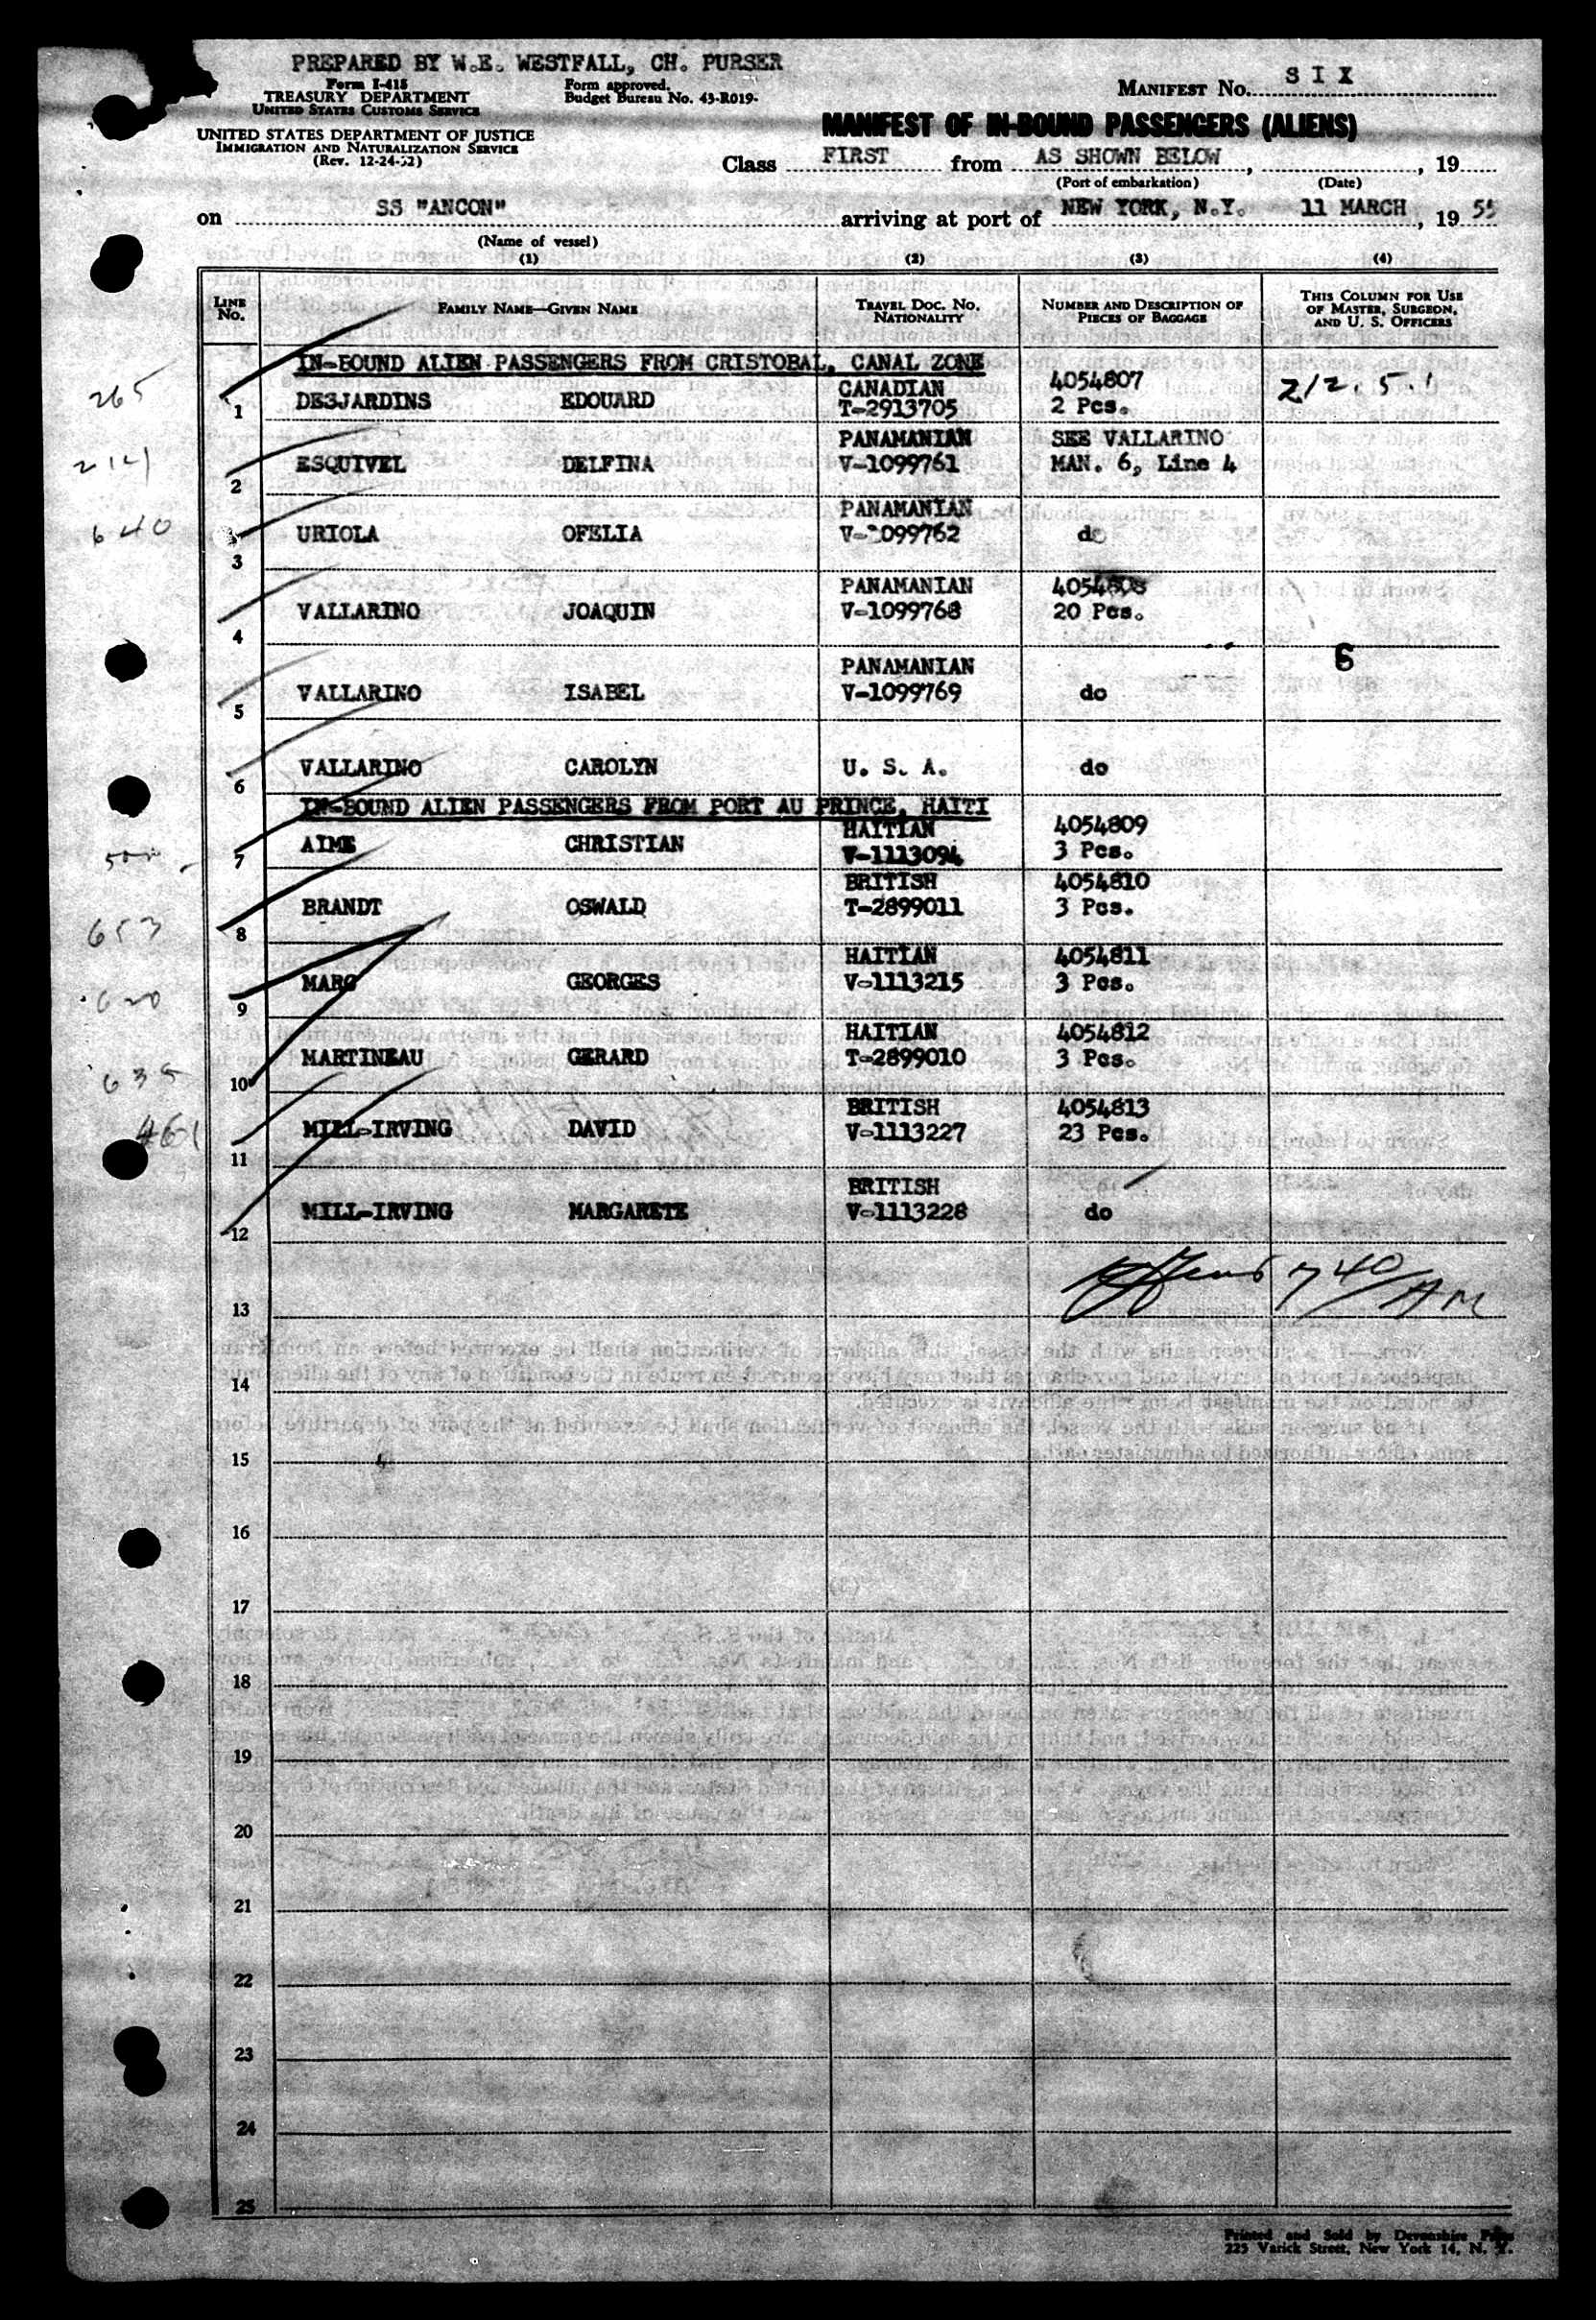 PREPARED BY W.E. WESTFALL, CH. PURSER
Form I-418
TREASURY DEPARTMENT
UNITED STATES CUSTOMS SERVICE
Form approved.
Budget Bureau No. 43-R019-
MANIFEST No. SIX
UNITED STATES DEPARTMENT OF JUSTICE
IMMIGRATION AND NATURALIZATION SERVICE
(Rev. 12-24-52)
MANIFEST OF IN-BOUND PASSENGERS (ALIENS)
Class FIRST from AS SHOWN BELOW, , 19
(Port of embarkation) (Date)
on SS "ANCON" arriving at port of NEW YORK, N.Y. 11 MARCH, 19 55
(Name of vessel)
(1) (2) (3) (4)
LINE No. FAMILY NAME—GIVEN NAME TRAVEL DOC. NO. NATIONALITY NUMBER AND DESCRIPTION OF PIECES OF BAGGAGE THIS COLUMN FOR USE OF MASTER, SURGEON, AND U. S. OFFICERS
IN-BOUND ALIEN PASSENGERS FROM CRISTOBAL, CANAL ZONE
265 1 DESJARDINS EDOUARD CANADIAN T-2913705 4054807 2 Pcs. 212.5.1
214 2 ESQUIVEL DELFINA PANAMANIAN V-1099761 SEE VALLARINO MAN. 6, Line 4
640 3 URIOLA OFELIA PANAMANIAN V-1099762 do
4 VALLARINO JOAQUIN PANAMANIAN V-1099768 4054808 20 Pcs.
6
5 VALLARINO ISABEL PANAMANIAN V-1099769 do
6 VALLARINO CAROLYN U. S. A. do
IN-BOUND ALIEN PASSENGERS FROM PORT AU PRINCE, HAITI
7 AIME CHRISTIAN HAITIAN V-1113094 4054809 3 Pcs.
653 8 BRANDT OSWALD BRITISH T-2899011 4054810 3 Pcs.
620 9 MARC GEORGES HAITIAN V-1113215 4054811 3 Pcs.
635 10 MARTINEAU GERARD HAITIAN T-2899010 4054812 3 Pcs.
461 11 MILL-IRVING DAVID BRITISH V-1113227 4054813 23 Pcs.
12 MILL-IRVING MARGARETE BRITISH V-1113228 do
740 AM
13
14
15
16
17
18
19
20
21
22
23
24
25
Printed and Sold by Devonshire Press
225 Varick Street, New York 14, N. Y.